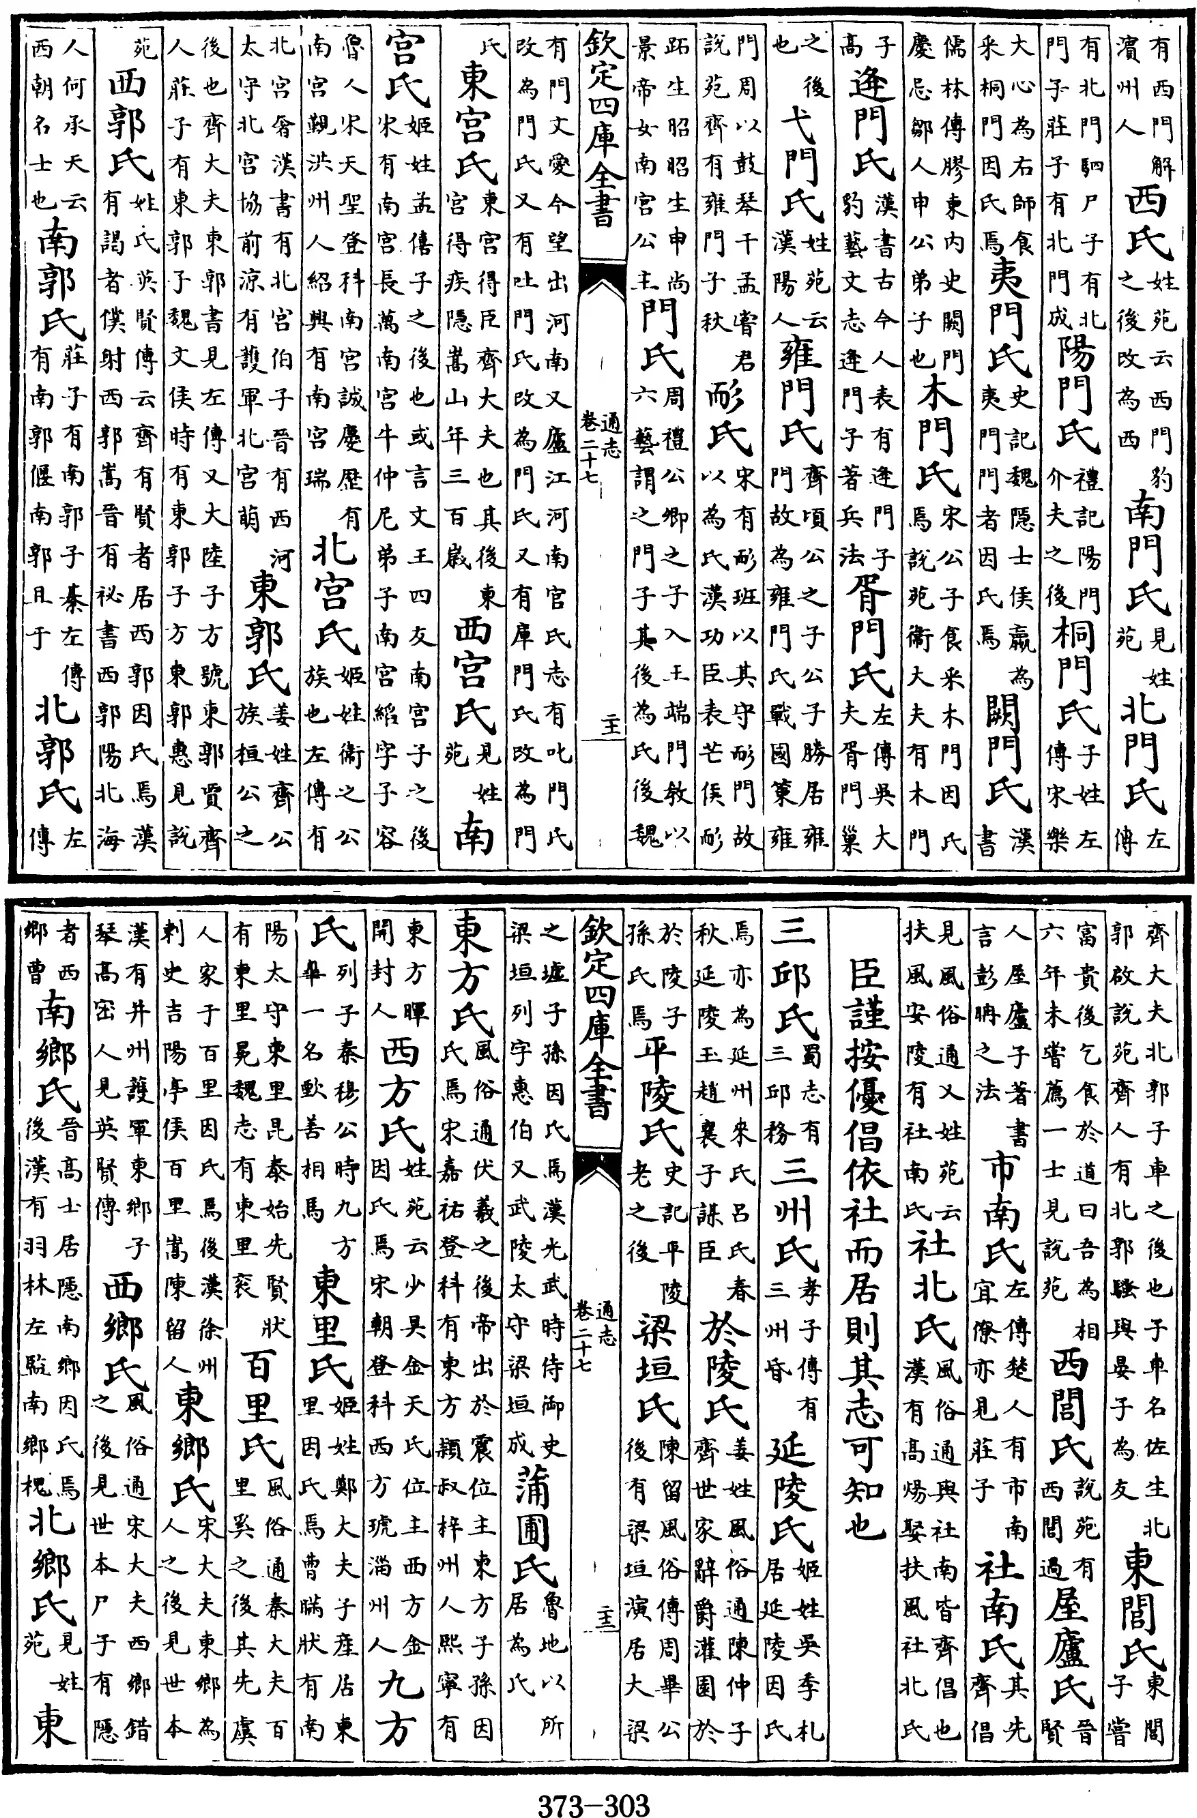 有西門解濱州人西氏姓苑云西門豹之後改為西南門氏見姓苑北門氏左傳
有北門駟尸子有北門子莊子有北門成陽門氏禮記陽門介夫之後桐門氏子姓左傳宋樂
大心為右師食采桐門因氏焉夷門氏史記魏隱士侯嬴為夷門門者因氏焉闕門氏漢書
儒林傳膠東内史闕門慶忌鄒人申公弟子也木門氏宋公子食采木門因氏焉說苑衞大夫有木門
子高逄門氏漢書古今人表有逄門子豹藝文志逄門子著兵法胥門氏左傳吳大夫胥門巢
之後也弋門氏姓苑云漢陽人雍門氏齊頃公之子公子勝居雍門故為雍門氏戰國策雍
門周以鼓琴干孟嘗君說苑齊有雍門子秋耏氏宋有耏班以其守耏門故以為氏漢功臣表芒侯耏
跖生昭昭生申尚景帝女南宮公主門氏周禮公卿之子入王端門教以六藝謂之門子其後為氏後魏
欽定四庫全書
通志
卷二十七
二十
有門文愛今望出河南又廬江河南官氏志有叱門氏改為門氏又有吐門氏改為門氏又有庫門氏改為門
氏東宮氏東宮得臣齊大夫也其後東宮得疾隱嵩山年三百嵗西宮氏見姓苑南
宮氏姬姓孟僖子之後也或言文王四友南宮子之後宋有南宮長萬南宮牛仲尼弟子南宮縚字子容
魯人宋天聖登科南宮誠慶歴有南宮覲洪州人紹興有南宮瑞北宮氏姬姓衞之公族也左傳有
北宮奢漢書有北宮伯子晉有西河太守北宮協前涼有護軍北宮萌東郭氏姜姓齊公族桓公之
後也齊大夫東郭書見左傳又大陸子方號東郭賈齊人莊子有東郭子魏文侯時有東郭子方東郭惠見說
苑西郭氏姓氏英賢傳云齊有賢者居西郭因氏焉漢有謁者僕射西郭嵩晉有祕書西郭陽北海
人何承天云西朝名士也南郭氏莊子有南郭子綦左傳有南郭偃南郭且于北郭氏左傳
齊大夫北郭子車之後也子車名佐生北郭啟說苑齊人有北郭騷與晏子為友東閭氏東閭子嘗
富貴後乞食於道曰吾為相六年未嘗薦一士見說苑西閭氏說苑有西閭過屋廬氏晉賢
人屋廬子著書言彭聃之法市南氏左傳楚人有市南宜僚亦見莊子社南氏其先齊倡
見風俗通又姓苑云扶風安陵有社南氏社北氏風俗通與社南皆齊倡也漢有高煬娶扶風社北氏
臣謹按優倡依社而居則其志可知也
三邱氏蜀志有三邱務三州氏孝子傳有三州昏延陵氏姬姓吳季札居延陵因氏
焉亦為延州來氏呂氏春秋延陵玉趙襄子謀臣於陵氏姜姓風俗通陳仲子齊世家辭爵灌園於
於陵子孫氏焉平陵氏史記平陵老之後梁垣氏陳留風俗傳周畢公後有梁垣演居大梁
欽定四庫全書
通志
卷二十七
二十一
之墟子孫因氏焉漢光武時侍御史梁垣列字惠伯又武陵太守梁垣成蒲圃氏魯地以所居為氏
東方氏風俗通伏羲之後帝出於震位主東方子孫因氏焉宋嘉祐登科有東方顥叔梓州人熙寧有
東方暉開封人西方氏姓苑云少昊金天氏位主西方金因氏焉宋朝登科西方琥淄州人九方
氏列子秦穆公時九方臯一名歅善相馬東里氏姬姓鄭大夫子産居東里因氏焉曹瞞狀有南
陽太守東里昆泰始先賢狀有東里晃魏志有東里衮百里氏風俗通秦大夫百里奚之後其先虞
人家于百里因氏焉後漢徐州刺史吉陽亭侯百里嵩陳留人東鄉氏宋大夫東鄉為人之後見世本
漢有并州護軍東鄉子琴高密人見英賢傳西鄉氏風俗通宋大夫西鄉錯之後見世本尸子有隱
者西鄉曹南鄉氏晉高士居隱南鄉因氏焉後漢有羽林左監南鄉槐北鄉氏見姓苑東
373–303